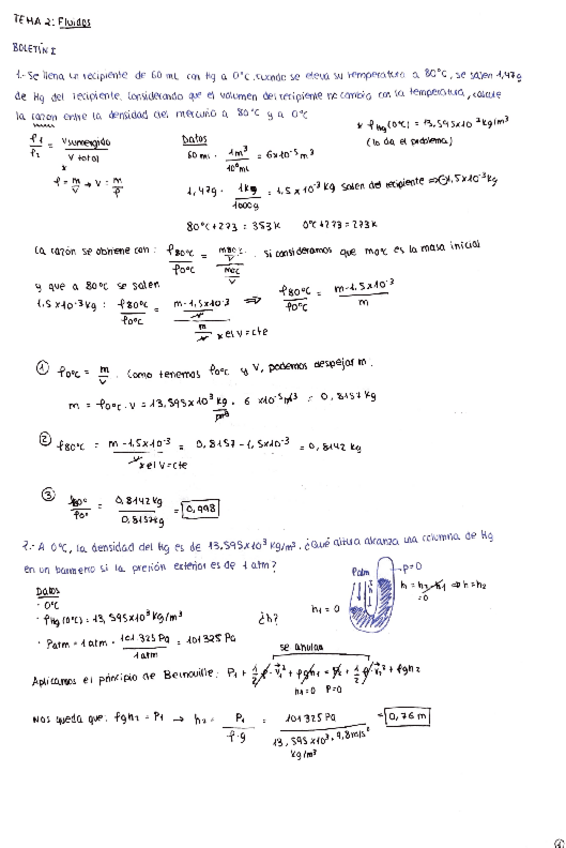 TEMA 2: Fluidos
BOLETÍN I
1.- Se llena un recipiente de 60 mL con Hg a 0°C. Cuando se eleva su temperatura a 80°C, se salen 1,47g
de Hg del recipiente. Considerando que el volumen del recipiente no cambia con la temperatura, calcule
la razón entre la densidad del mercurio a 80°C y a 0°C
* ρHg (0°C) = 13,595x10³ kg/m³
(lo da el problema)
ρ1/ρ2 = Vsumergido / V total
Datos
60 mL · 1m³/10⁶mL = 6x10⁻⁵ m³
ρ = m/V → V = m/ρ
1,47g · 1kg/1000g = 1,5x10⁻³ kg salen del recipiente ⇒ -1,5x10⁻³ kg
80°C+273 = 353K 0°C+273 = 273K
La razón se obtiene con: ρ80°C/ρ0°C = (m80°C/V)/(m0°C/V). Si consideramos que m0°C es la masa inicial
y que a 80°C se salen
1,5x10⁻³ kg: ρ80°C/ρ0°C = ((m-1,5x10⁻³)/V)/(m/V) ⇒ ρ80°C/ρ0°C = (m-1,5x10⁻³)/m
* el V=cte
① ρ0°C = m/V. Como tenemos ρ0°C y V, podemos despejar m.
m = ρ0°C · V = 13,595x10³ kg/m³ · 6x10⁻⁵m³ = 0,8157 kg
② ρ80°C = (m-1,5x10⁻³)/V = 0,8157-1,5x10⁻³ = 0,8142 kg
* el V=cte
③ ρ80°/ρ0° = 0,8142kg/0,8157kg = 0,998
2.- A 0°C, la densidad del Hg es de 13,595x10³ kg/m³. ¿Qué altura alcanza una columna de Hg
en un barómetro si la presión exterior es de 1 atm?
Datos
· 0°C
· ρHg (0°C) = 13,595x10³ kg/m³
¿h?
· Patm = 1 atm · 101.325 Pa/1 atm = 101325 Pa
Patm
P=0
h
h1 = 0
h = h2 - h1 ⇒ h = h2
=0
se anulan
Aplicamos el principio de Bernouille: P1 + 1/2 ρ·v1² + ρgh1 = P2 + 1/2 ρ·v2² + ρgh2
h1=0 P=0
Nos queda que: ρgh2 = P1 → h2 = P1/ρ·g = 101325 Pa / 13,595x10³ kg/m³ · 9,8m/s² = 0,76 m
①